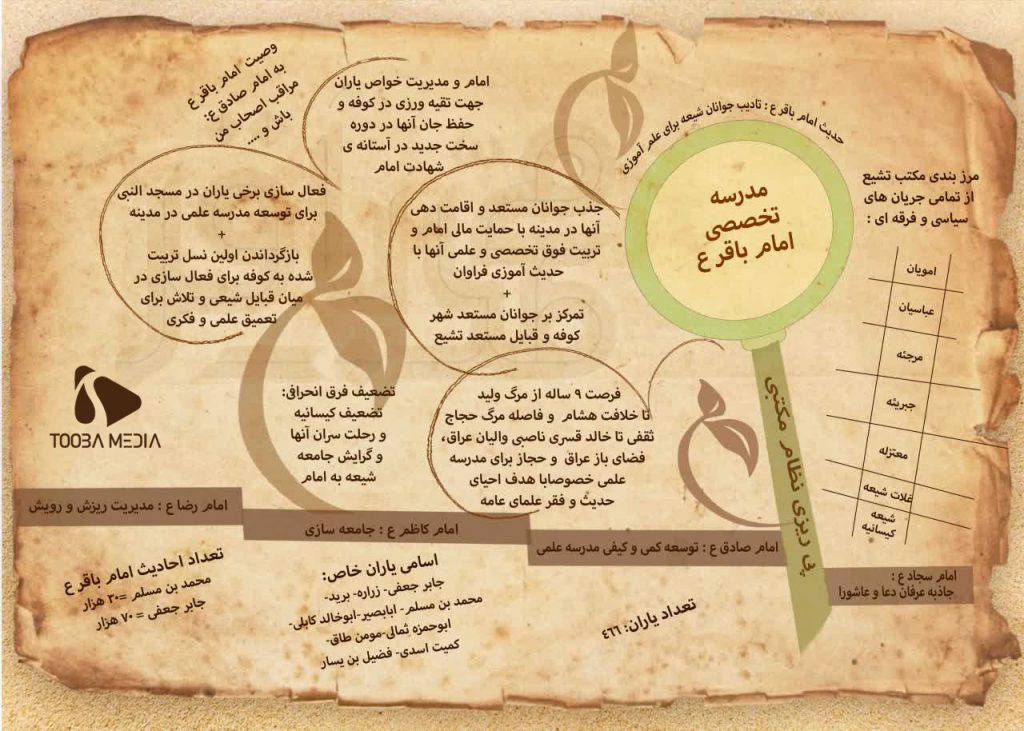 حدیث امام باقر ع : تادیب جوانان شیعه برای علم آموزی
مدرسه
تخصصی
امام باقر ع
پی ریزی نظام مکتبی
مرز بندی مکتب تشیع
از تمامی جریان های
سیاسی و فرقه ای :
امویان
عباسیان
مرجئه
جبریئه
معتزله
غلات شیعه
شیعه
کیسانیه
امام و مدیریت خواص یاران
جهت تقیه ورزی در کوفه و
حفظ جان آنها در دوره
سخت جدید در آستانه ی
شهادت امام
وصیت امام باقر ع
به امام صادق ع:
مراقب اصحاب من
باش و ....
جذب جوانان مستعد و اقامت دهی
آنها در مدینه با حمایت مالی امام و
تربیت فوق تخصصی و علمی آنها با
حدیث آموزی فراوان
+
تمرکز بر جوانان مستعد شهر
کوفه و قبایل مستعد تشیع
فعال سازی برخی یاران در مسجد النبی
برای توسعه مدرسه علمی در مدینه
+
بازگرداندن اولین نسل تربیت
شده به کوفه برای فعال سازی در
میان قبایل شیعی و تلاش برای
تعمیق علمی و فکری
فرصت ۹ ساله از مرگ ولید
تا خلافت هشام و فاصله مرگ حجاج
ثقفی تا خالد قسری ناصبی والیان عراق،
فضای باز عراق و حجاز برای مدرسه
علمی خصوصابا هدف احیای
حدیث و فقر علمای عامه
تضعیف فرق انحرافی:
تضعیف کیسانیه
و رحلت سران آنها
و گرایش جامعه
شیعه به امام
TOOBA MEDIA
امام سجاد ع :
جاذبه عرفان دعا و عاشورا
امام صادق ع : توسعه کمی و کیفی مدرسه علمی
امام کاظم ع : جامعه سازی
امام رضا ع : مدیریت ریزش و رویش
تعداد یاران: ٤٦٦
اسامی یاران خاص:
جابر جعفی- زراره- برید-
محمد بن مسلم- ابابصیر-ابوخالد کابلی-
ابوحمزه ثمالی-مومن طاق-
کمیت اسدی- فضیل بن یسار
تعداد احادیث امام باقر ع
محمد بن مسلم =۳۰ هزار
جابر جعفی = ۷۰ هزار